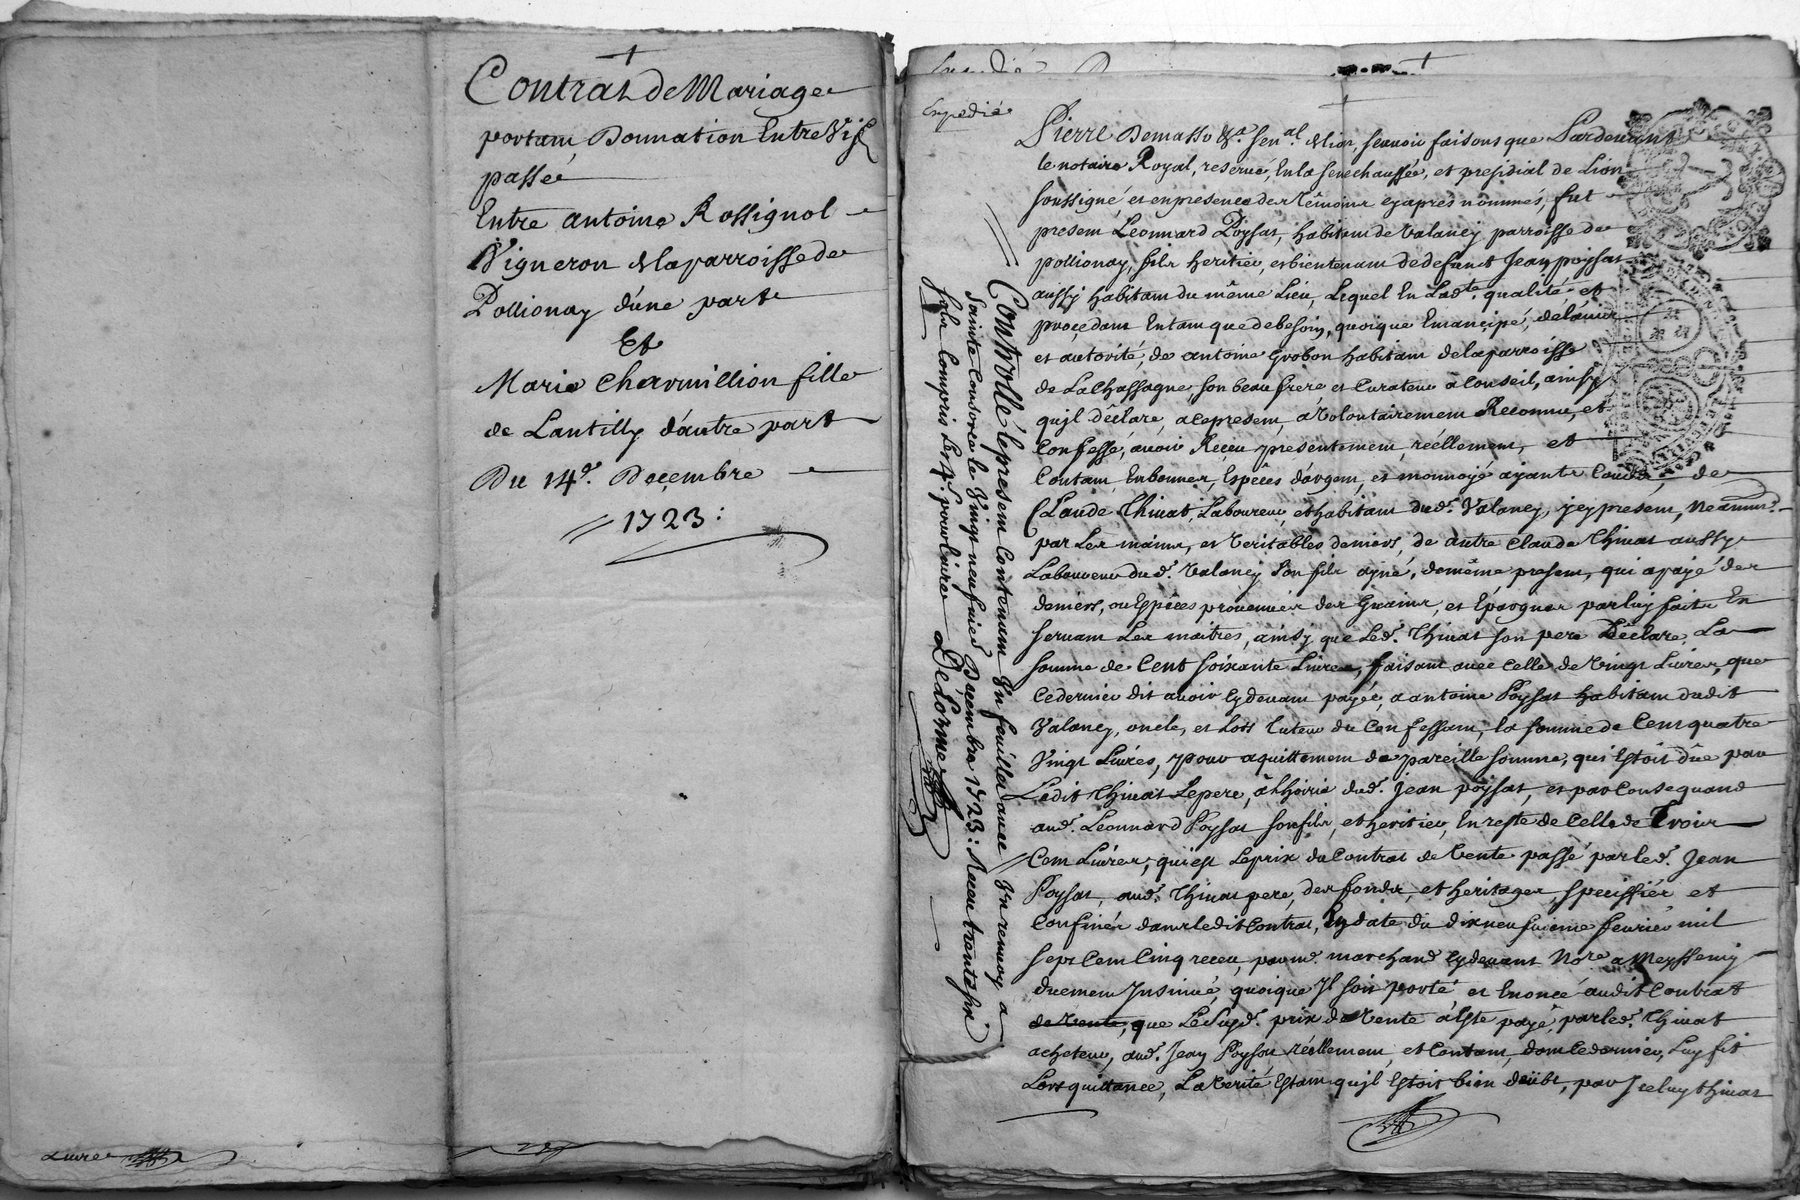 Contrat de Mariage
portant Donnation Entre Vifs
passée
Entre antoine Rossignol
Vigneron de la parroisse de
Pollionay d'une part
Et
Marie Chermillion fille
de Lantilly d'autre part
Du 14e. Decembre
1723:
Livrée
Expedié
Pierre Demasso &a. sena.l de lion, scavoir faisons que Pardevant
le notaire Royal, reservé, En la senechaussée, et presidial de Lion
soussigné et en presence des têmoins cyapres nommés, fut
present Leonnard Poysat, habitant de Valancy parroisse de
pollionay, fils heritier, et bientenant de defunct Jean poysat
aussy habitant du même Lieu, Lequel En Ladte. qualité, et
procedant Entant que de besoin, quoique Emancipé, de l'avis
et autorité, de antoine Grobon habitant de la parroisse
de La Chassagne, son beau frere et Curateur a Conseil, ainsy
qu'jl dêclare, a ce present, a volontairement Reconnu, et
Confessé, avoir Receu presentement, reéllement, et
Contant, En bonnes, Espêces d'argent, et monnoyé ayants Cours, de
Claude Thivat, Laboureur, et habitant dud. Valancy, jcy present,
par Les mains, et Veritables deniers, de autre Claude Thivat aussy
Laboureur dud. Valancy son fils ayné, de même present, qui a payé des
deniers, ou Espêces provenües des Gains, et Epargnes par luy faits En
servant Les maitres, ainsy que Led. Thivat son pere Déclare, La
somme de Cent soixante Livres, faisant avec celle de Vingt Livres, que
Ce dernier dit avoir Cydevant payée, a antoine Poysat habitant dudit
Valancy, oncle, et Lors Tuteur du Confessant, la somme de Cent quatre
Vingt Livres, pour aquittement de pareille somme, qui Estoit dûe par
Ledit Thivat Le pere, a l'hoirie dud. Jean poysat, et par Consequand
aud. Leonnard Poysat son fils, et heritier, En reste de Celle de Trois
Cent Livres, qui est Le prix du Contrat de Vente passé par led. Jean
Poysat, aud. Thivat pere, des fonds, et heritages, speciffiés et
Confinés dans ledit Contrat, En date du dix neufvieme fevrier mil
sept Cent Cinq receu, par me. marchand Cydevant Nore a Messimy
duement Jnsinué, quoique Jl soit porté et Enoncé audit Contrat
de Vente, que Le susd. prix de Vente a'Esté payé, par led. Thivat
acheteur, aud. Jean Poysat reéllement, et Contant, dont Ce dernier, Luy fit
Lors quittance, La Verité Estant qu'jl Estoit bien deübt, par Jceluy Thivat
Controllé le present Contenant Un feuillet avec Un renvoy a
Sainte Consorce le Vingt neufvieme Decembre 1723: Receu trente six
sols Compris Les 4s. pour livre Delorme